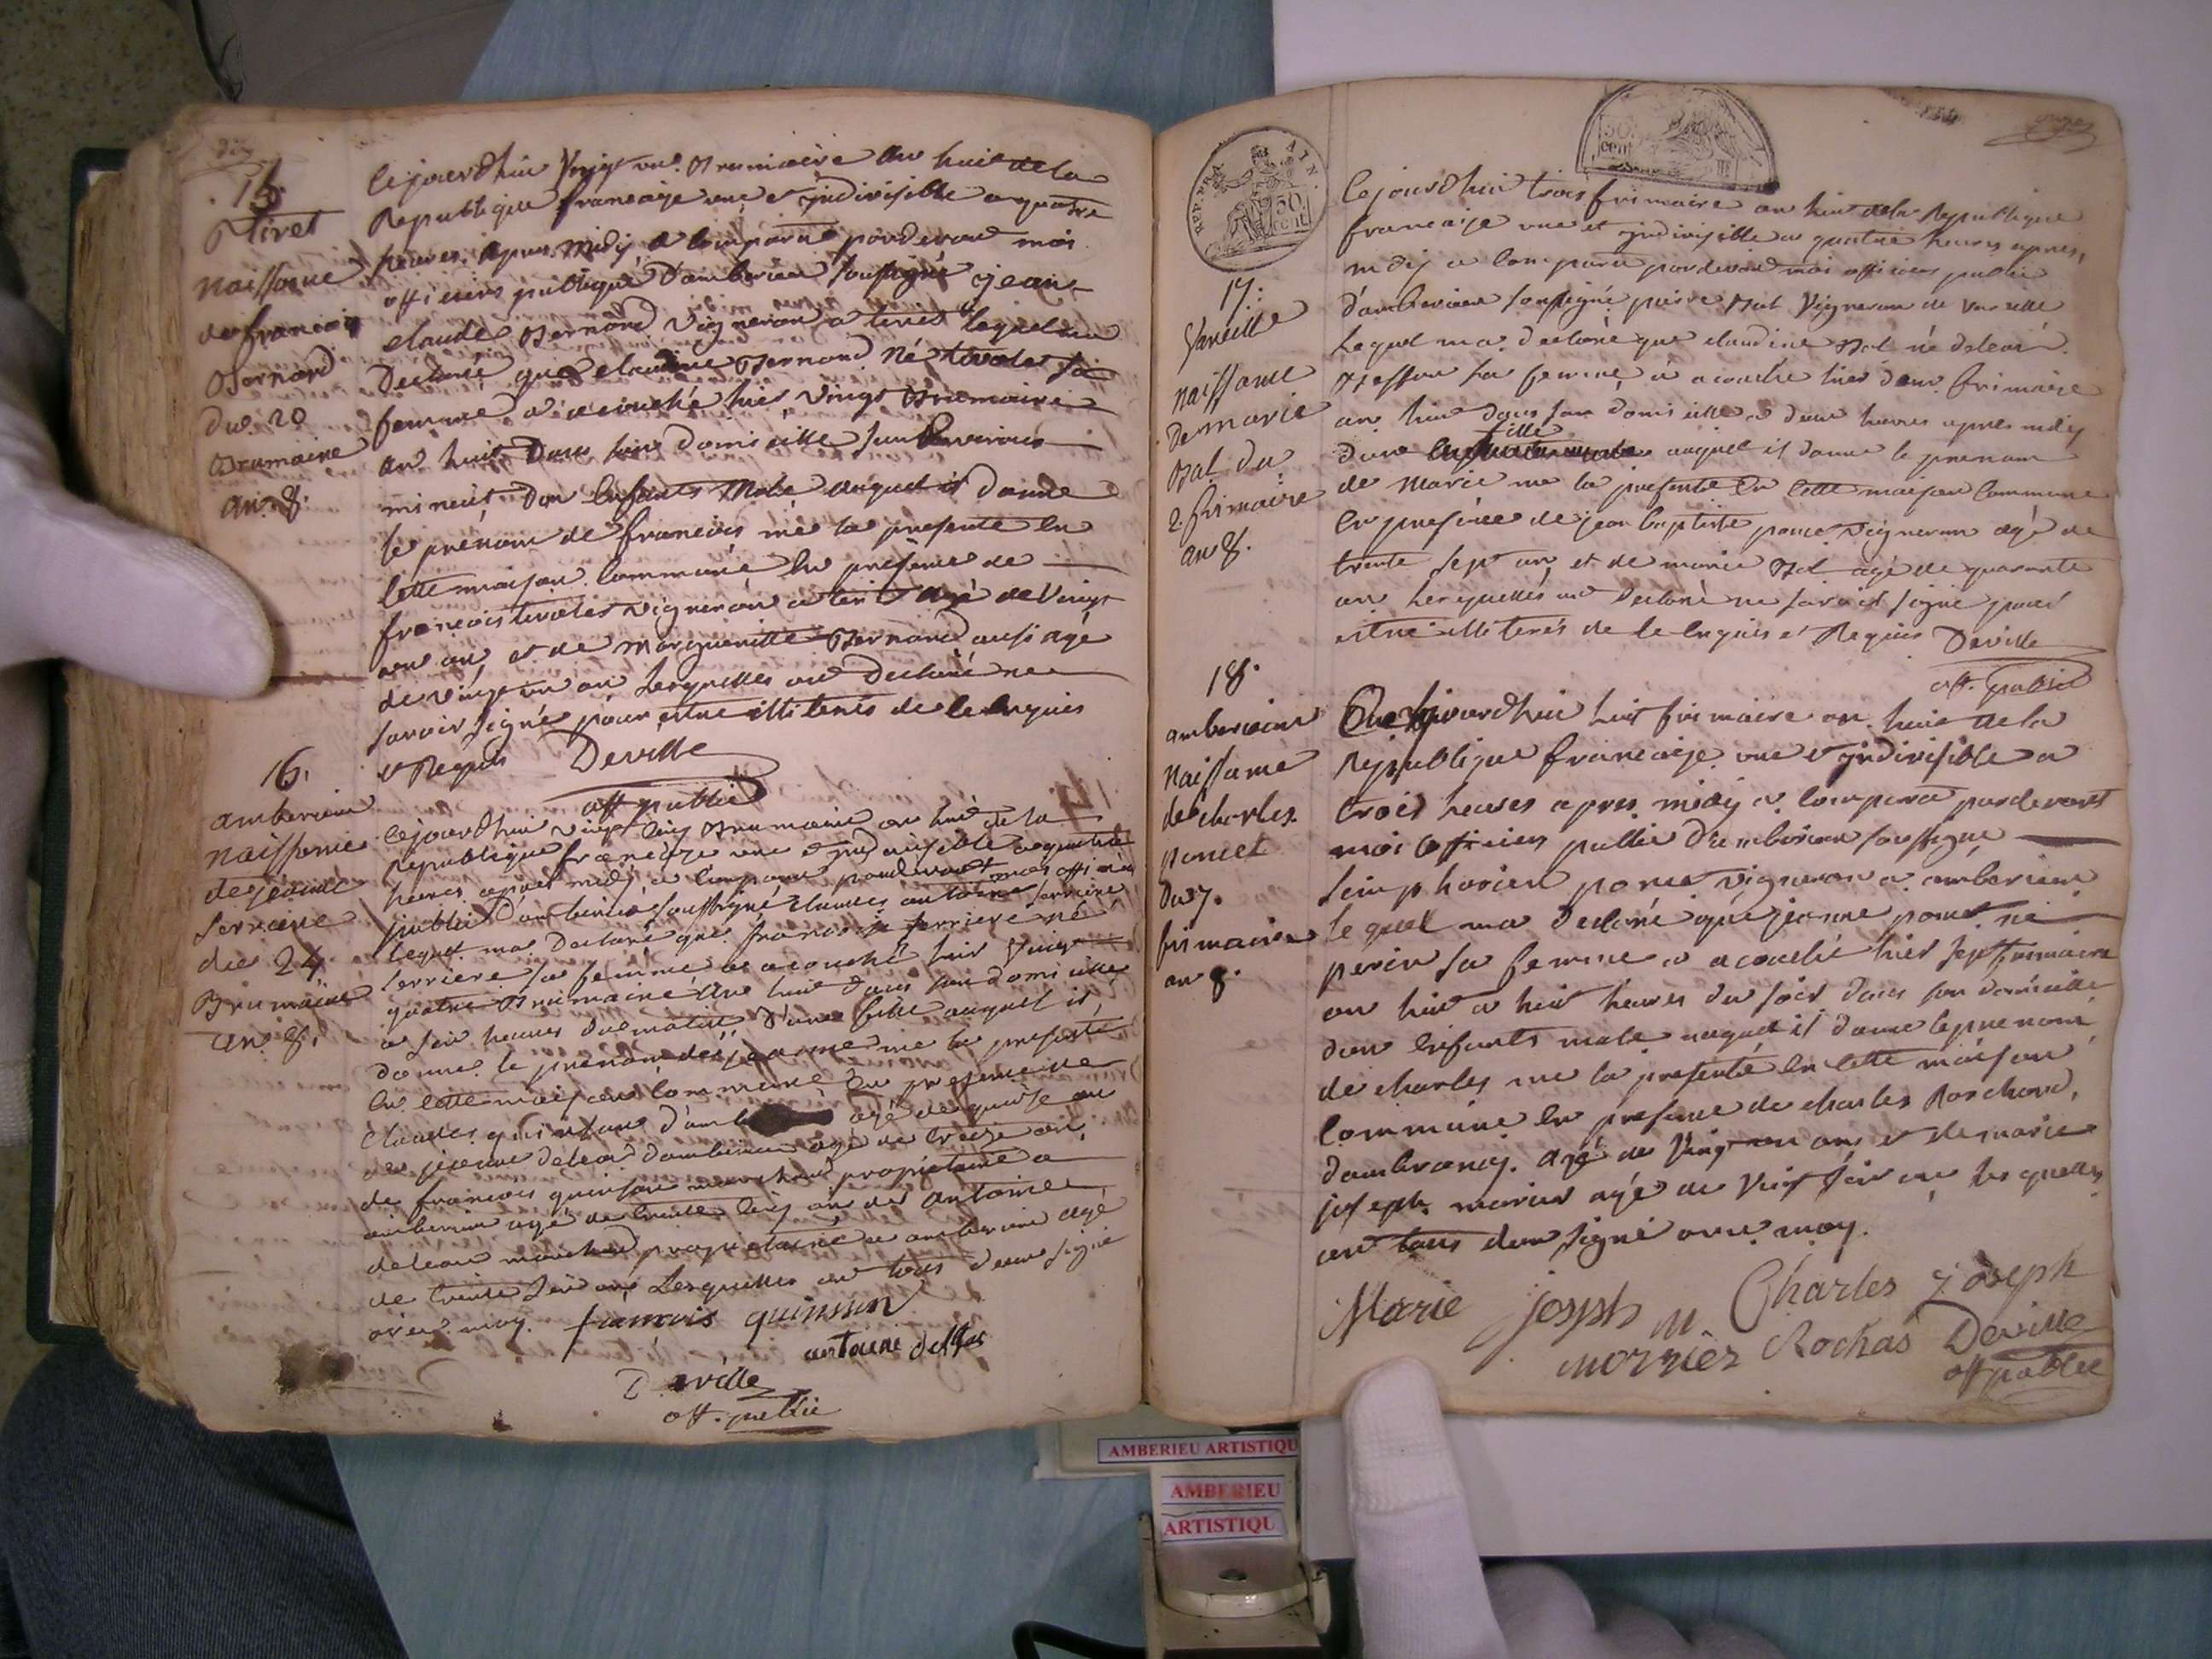 dix
15.
Tiret
naissance
de francois
Bernard
du 20
Brumaire
an 8.
Cejourdhui Vingt un Brumaire an huit de la
Republique francaise une et indivisible a quatre
heures apres midy a comparu pardevant moi
officiers publique d'amberieu soussigné jean
claude Bernard vigneron a tiret lequel ma
Declaré que claudine Bernard né tivolet sa
femme a acouché hier vingt Brumaire
an huit dans son domicille sur
minuit d'un enfants male auquel il donne
le prenom de francois me la presente en
cette maison commune en presence de
francois tivolet vigneron a tiret agé de vingt
un an, et de Margueritte Bernard ausi agé
de vingt un an Lesquelles ont Declaré ne
savoir signé pour estre illiterés de ce enquis
et Requis Deville
off. public
16.
amberieu
naissance
de jeanne
ferriere
du 24
Brumaire
an 8.
Cejourdhui vingt cinq Brumaire an huit de la
Republique francaise une et indivisible a quatre
heures apres midy a comparu pardevant moi officier
public d'amberieu soussigné claudes antoine ferriere
lequel ma Declaré que francoise ferriere né
ferriere sa femme a acouché hier vingt
quatre Brumaire an huit dans son domicille
a six heures du matin d'une fille auquel il
donne le prenom de jeanne me la presenté
en cette maison commune en presence de
Claudes quinson d'amb agé de quinse an
de jeanne deleas d'amberieu agé de treize an
de francois quinson marchand proprietaire a
amberieu agé de trente cinq an et des antoine
deleas marchand propriettaire a amberieu agé
de trente six an Lesquelles ont tous deux signé
avec moy. francois quinson
antoine delleas
Deville
off. public
onze
REP. FRA. AIN.
50 cent
50 cent
17.
Vareille
naissance
de marie
Bal du
2. frimaire
an 8.
Cejourdhui trois frimaire an huit de la Republique
francaise une et indivisible a quatre heures apres
midy a comparu pardevant moi officiers public
d'amberieu soussigné pierre Bal Vigneron de Vareille
Lequel ma declaré que claudine Bal né
sa femme a acouché hier deux frimaire
an huit dans son domicille a deux heures apres midy
d'une fille auquel il donne le prenom
de Marie me la presente en cette maison commune
en presence de jean baptiste poncet vigneron agé de
trente sept an et de marie Bal agé de quarante
an Lesquelles ont Declaré ne savoir signé pour
estre illiterés de ce enquis et Requis Deville
off. public
18.
amberieu
naissance
de charles
poncet
du 7.
frimaire
an 8.
Cejourdhui huit frimaire an huit de la
Republique francaise une et indivisible a
trois heures apres midy a comparu pardevant
moi officier public d'amberieu soussigné
simphorien poncet vigneron a amberieu
lequel ma Declaré que jeanne poncet né
perin sa femme a acouché hier sept frimaire
an huit a huit heures du soir dans son domicille
d'un enfants male auquel il donne le prenom
de charles me la presenté en cette maison
commune en presence de charles
d'ambronay agé de Vingt un ans et de marie
joseph morier agé de Vingt six an lesquelles
ont tous deux signé avec moy.
Marie joseph Charles joseph
mornier Rochas Deville
off public
AMBERIEU ARTISTIQU
AMBERIEU
ARTISTIQU